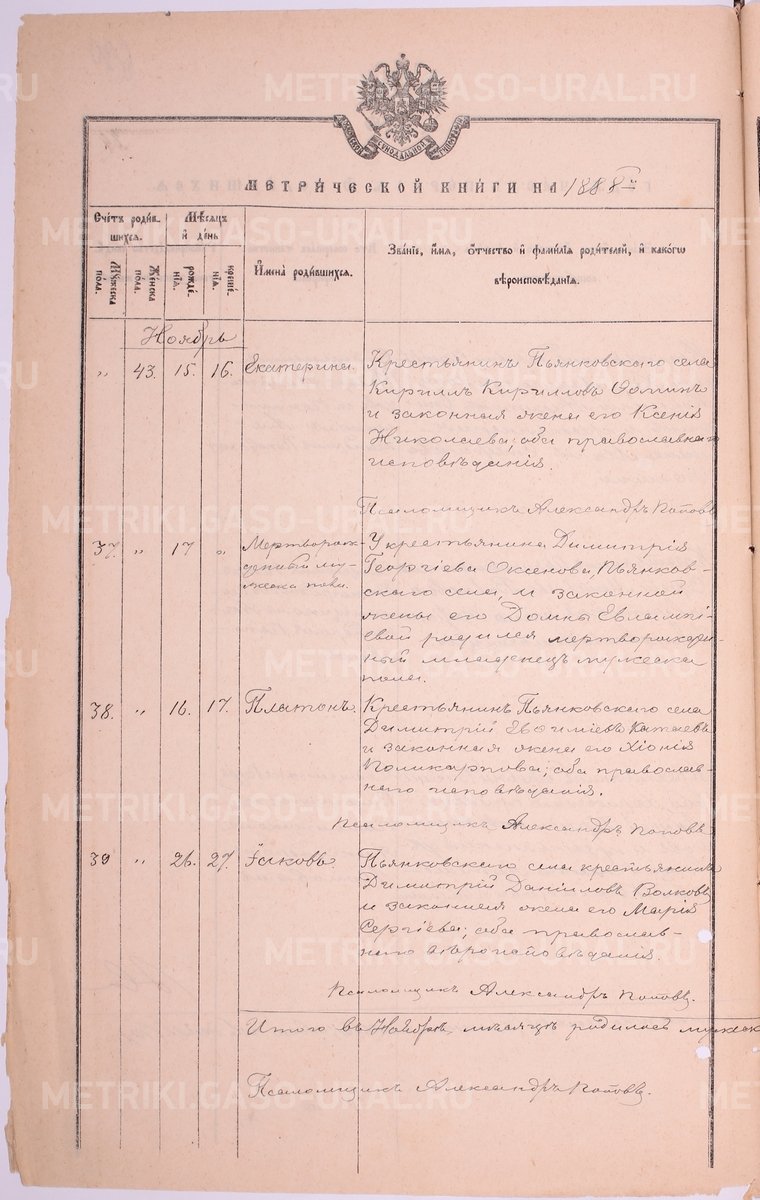 МЕТРИ́ЧЕСКОЙ КНИ́ГИ НА 1888 й
Сче́тъ роди́в-
шихся.
Мѣ́сяцъ
и̂ де́нь
И̂мена̀ роди́вшихся.
Зва́ніе, и́мя, ѻ́тчество и̂ фами́лїя роди́телей, и̂ како́гѡ
вѣроисповѣ́данїя.
Мꙋ́жеска
по́ла.
Же́нска
по́ла.
рожде́-
нїя.
креще́-
нїя.
Ноябрь
„ 43. 15. 16. Екатерина. Крестьянинъ Пьянковскаго села
Кириллъ Кирилловъ Ѳоминъ
и законная жена его Ксенія
Николаева; оба православнаго
исповѣданія.
Псаломщикъ Александръ Поповъ
37. „ 17 „ Мертворож-
денный му-
жеска пола.
У крестьянина Димитрія
Георгіева Оксенова, Пьянков-
скаго села, и законной
жены его Домны Евлампі-
евой родился мертворожден-
ный младенецъ мужеска
пола.
38. „ 16. 17. Платонъ. Крестьянинъ Пьянковскаго села
Димитрій Евѳиміевъ Катаевъ
и законная жена его Хіонія
Поликарпова; оба православ-
наго исповѣданія.
Псаломщикъ Александръ Поповъ
39 „ 26. 27. Іаковъ. Пьянковскаго села крестьянинъ
Димитрій Даніиловъ Волковъ
и законная жена его Марія
Сергіева; оба православ-
наго вѣроисповѣданія.
Псаломщикъ Александръ Поповъ.
Итого въ Ноябрѣ мѣсяцѣ родилось мужеск
Псаломщикъ Александръ Поповъ.
METRIKI.GASO-URAL.RU